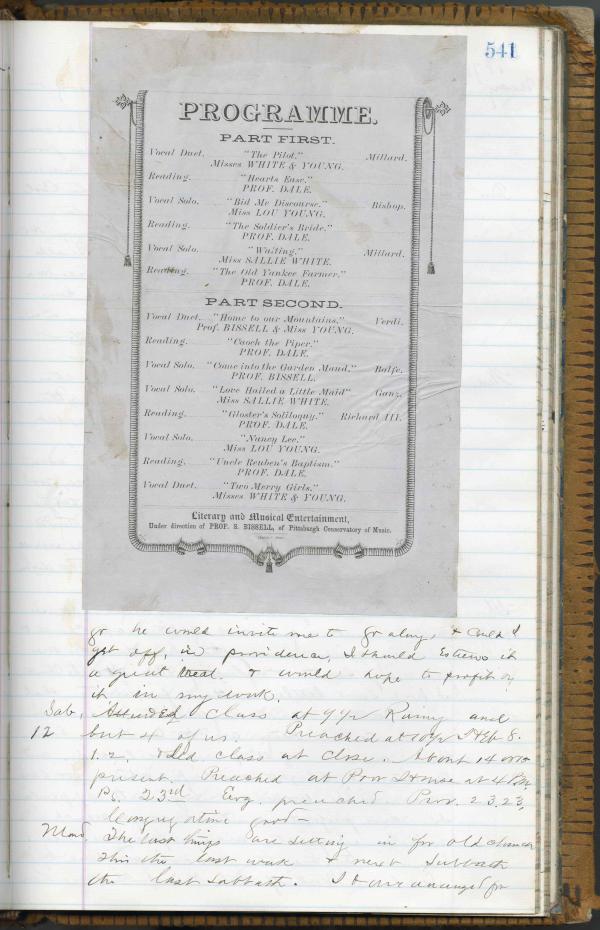 541
PROGRAMME.
PART FIRST.
Vocal Duet. "The Pilot," Millard.
Misses WHITE & YOUNG.
Reading. "Hearts Ease."
PROF. DALE.
Vocal Solo. "Bid Me Discourse." Bishop.
Miss LOU YOUNG.
Reading. "The Soldier's Bride."
PROF. DALE.
Vocal Solo. "Waiting." Millard.
Miss SALLIE WHITE.
Reading. "The Old Yankee Farmer."
PROF. DALE.
PART SECOND.
Vocal Duet. "Home to our Mountains," Verdi.
Prof. BISSELL & Miss YOUNG.
Reading. "Caoch the Piper."
PROF. DALE.
Vocal Solo. "Come into the Garden Maud," Balfe.
PROF. BISSELL.
Vocal Solo. "Love Hailed a Little Maid" Ganz.
Miss SALLIE WHITE.
Reading. "Gloster's Soliloquy." Richard III.
PROF. DALE.
Vocal Solo. "Nancy Lee."
Miss LOU YOUNG.
Reading. "Uncle Reuben's Baptism."
PROF. DALE.
Vocal Duet. "Two Merry Girls,"
Misses WHITE & YOUNG.
Literary and Musical Entertainment,
Under direction of PROF. S. BISSELL, of Pittsburgh Conservatory of Music.
go he would invite me to go along, & could I
get off, in providence, I should esteem it
a great treat. & would hope to profit by
it in my work.
Sab. Attended class at 9 1/2 Rainy and
12 but 4 of us. Preached at 10 1/2 Heb 8.
1.2. & led class at close. About 14
present. Preached at Poor House at 4 P.M.
Ps. 23rd Evg. preached Prov. 23.23,
Mond. The last things are setting in for old
this the last week & next Sabbath
the last Sabbath. I have arranged for